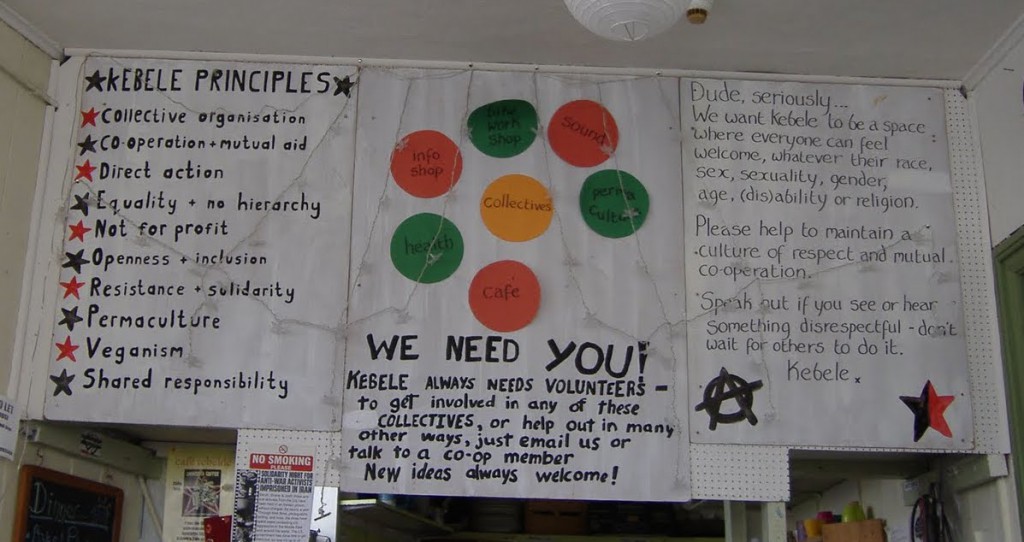 KEBELE PRINCIPLES
Collective organisation
Co-operation + mutual aid
Direct action
Equality + no hierarchy
Not for profit
Openness + inclusion
Resistance + sulidarity
Permaculture
Veganism
Shared responsibility
bike
work
shop
sound
info
shop
Collectives
perma
culture
health
cafe
WE NEED YOU!
KEBELE ALWAYS NEEDS VOLUNTEERS -
to get involved in any of these
COLLECTIVES, or help out in many
other ways, just email us or
talk to a co-op member
New ideas always welcome!
Dude, seriously...
We want Kebele to be a space
where everyone can feel
welcome, whatever their race,
sex, sexuality, gender,
age, (dis)ability or religion.
Please help to maintain a
culture of respect and mutual
co-operation.
Speak out if you see or hear
something disrespectful - don't
wait for others to do it.
Kebele x
NO SMOKING
PLEASE
SOLIDARITY MORE FOR
ANTI-WAR ACTIVISTS
IMPRISONED IN IRAN